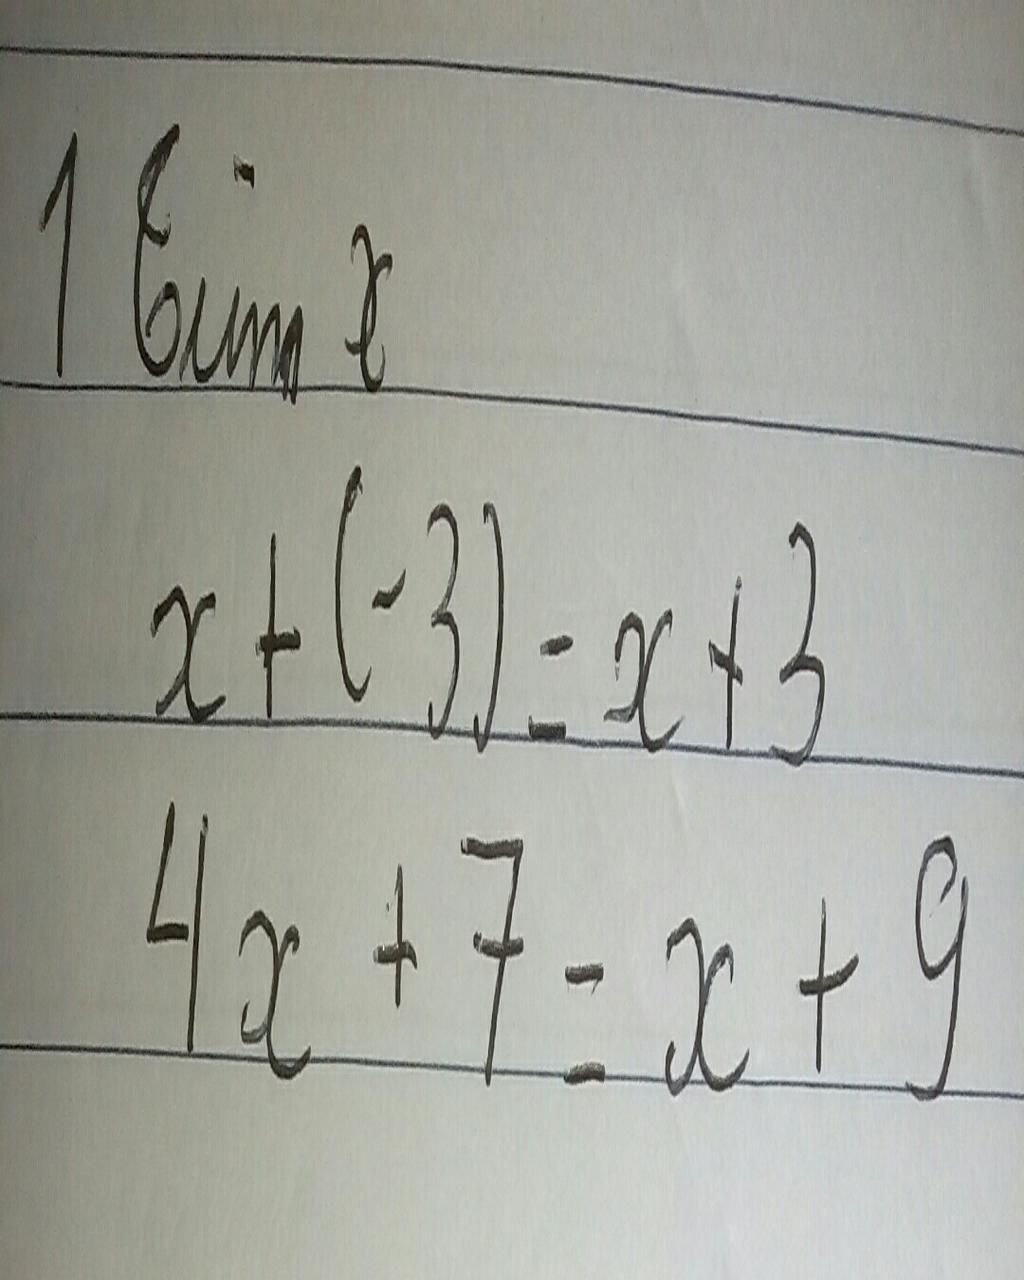 1 tìm x
x + (-3) = x + 3
4x + 7 = x + 9